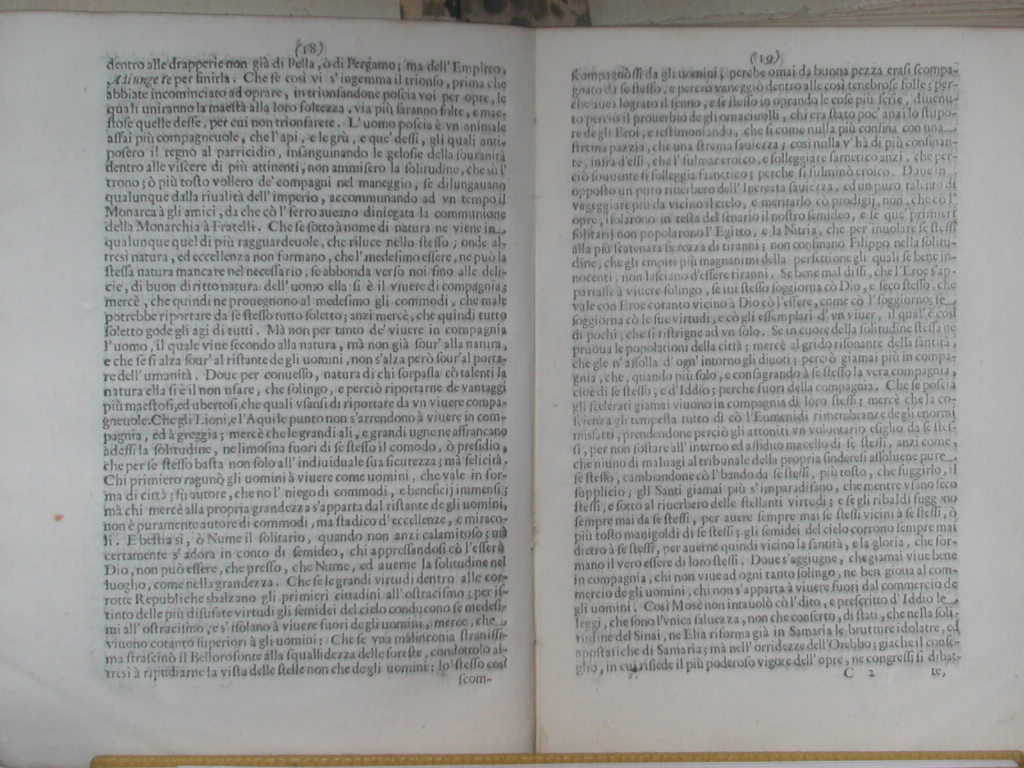 (18)
dentro alle drapperie non già di Pella, ò di Pergamo; ma dell'Empireo,
Adiunge te per finirla. Che se così vi s'ingemma il trionfo, prima che
abbiate incominciato ad oprare, in trionfandone poscia voi per opre, le
quali uniranno la maestà alla loro foltezza, via più saranno folte, e mae-
stose quelle desse, per cui non trionfarete. L'uomo poscia è vn animale
assai più compagneuole, che l'api, e le grù, e que' dessi, gli quali anti-
posero il regno al parricidio, insanguinando le gelosie della souranità
dentro alle viscere di più attinenti, non ammisero la solitudine, che su'l
trono; ò più tosto vollero de' compagni nel maneggio, se dilungauano
qualunque dalla riualità dell'imperio, accommunando ad vn tempo il
Monarca à gli amici, da che cò l'ferro aueano diniegata la communione
della Monarchia à Fratelli. Che se sotto à nome di natura ne viene in
qualunque quel di più ragguardeuole, che riluce nello stesso; onde al-
tresi natura, ed eccellenza non formano, che l'medesimo essere, ne può la
stessa natura mancare nel necessario, se abbonda verso noi fino alle deli-
cie, di buon diritto natura dell'uomo ella si è il viuere di compagnia;
mercè, che quindi ne prouegnono al medesimo gli commodi, che male
potrebbe riportare da se stesso tutto soletto; anzi mercè, che quindi tutto
soletto gode gli agi di tutti. Mà non per tanto de' viuere in compagnia
l'uomo, il quale viue secondo alla natura, mà non già sour'alla natura,
e che se si alza sour'al ristante degli uomini, non s'alza però sour'al porta-
re dell'umanità. Doue per conuesso, natura di chi sorpassa cò talenti la
natura ella si è il non vsare, che solingo, e perciò riportarne de vantaggi
più maestosi, ed vbertosi, che quali vsansi di riportare da vn viuere compa-
gneuole. Che gli Lioni, e l'Aquile punto non s'arrendono à viuere in com-
pagnia, ed à greggia; mercè che le grandi ali, e grandi ugne ne affrancano
adessi la solitudine, ne limosina fuori di se stesso il comodo, ò presidio,
che per se stesso basta non solo all'indiuiduale sua sicurezza; mà felicità.
Chi primiero ragunò gli uomini à viuere come uomini, che vale in for-
ma di città; fù autore, che no l'niego di commodi, e beneficij immensi;
mà chi mercè alla propria grandezza s'apparta dal ristante degli uomini,
non è puramente autore di commodi, ma stadico d'eccellenze, e miraco-
li. E bestia sì, ò Nume il solitario, quando non anzi calamitoso; mà
certamente s'adora in conto di semideo, chi appressandosi cò l'essere à
Dio, non può essere, che presso, che Nume, ed auerne la solitudine nel
luogho, come nella grandezza. Che se le grandi virtudi dentro alle cor-
rotte Republiche sbalzano gli primieri cittadini all'ostracismo; per is-
tinto delle più disusate virtudi gli semidei del cielo conducono se medesi-
mi all'ostracismo, e s'isolano à viuere fuori degli uomini, mercè, che
viuono cotanto superiori à gli uomini: Che se vna malinconia stranissi-
ma strascinò il Bellorofonte alla squallidezza delle foreste, condottolo al-
tresì à ripudiarne la vista delle stelle non che degli uomini: lo stesso così
scom-
(19)
scompagnossi da gli uomini; perche omai da buona pezza erasi scompa-
gnato da se stesso, e perciò vaneggiò dentro alle così tenebrose folle; per-
che auea lograto il senno, e se stesso in oprando le cose più serie, diuenu-
to perciò il prouerbio degli omaciuolli, chi era stato poc'anzi lo stupo-
re degli Eroi, e testimoniando, che si come nulla più confina con una
strema pazzia, che una strema sauiezza; così nulla v'hà di più confinan-
te, infra d'essi, che l'fulmar eroico, e folleggiare farnetico anzi, che per-
ciò souuente si folleggia frenetico; perche si fulminò eroico. Doue in
opposto un puro riuerbero dell'Increata sauiezza, ed un puro talento di
vagheggiare più da vicino il cielo, e meritarlo cò prodigij, non, che cò l'
opre, isolarono in testa del senario il nostro semideo, e se que' primieri
solitarij non popolarono l'Egitto, e la Nitria, che per inuolare se stessi
alla più scatenata fierezza di tiranni; non confinano Filippo nella solitu-
dine, che gli empiti più magnanimi della perfettione gli quali se bene in-
nocenti, non lasciano d'essere tiranni. Se bene mal dissi, che l'Eroe s'ap-
partasse à viuere solingo, se iui stesso soggiorna cò Dio, e seco stesso, che
vale con Eroe cotanto vicino à Dio cò l'essere, come cò l'soggiorno; se
soggiorna cò le sue virtudi, e cò gli essemplari d'vn viuer, il qual'è così
di pochi, che si ristrigne ad vn solo. Se in cuore della solitudine stessa ne
pruoua le popolationi della città; mercè al grido risonante della santità,
che gle n'affolla d'ogn'intorno gli diuoti; perciò giamai più in compa-
gnia, che, quando più solo, e consagrando à se stesso la vera compagnia,
cioè di se stesso, e d'Iddio; perche fuori della compagnia. Che se poscia
gli scelerati giamai viuono in compagnia di loro stessi; mercè che la co-
scienza gli tempesta tutto dì cò l'Eumenidi rimembranze degli enormi
misfatti, prendendone perciò gli attoniti vn volontario esiglio da se stes-
si, per non sostare all'interno ed assiduo macello di se stessi, anzi come,
che niuno di maluagi al tribunale della propria sinderesi assoluere pure
se stesso, cambiandone cò l'bando da se stessi, più tosto, che fuggirlo, il
supplicio; gli Santi giamai più s'imparadisano, che mentre vsano seco
stessi, e sotto al riuerbero delle stellanti virtudi; e se gli ribaldi fuggono
sempre mai da se stessi, per auere sempre mai se stessi vicini à se stessi, ò
più tosto manigoldi di se stessi; gli semidei del cielo corrono sempre mai
dietro à se stessi, per auerne quindi vicino la santità, e la gloria, che for-
mano il vero essere di loro stessi. Doue s'aggiugne, che giamai viue bene
in compagnia, chi non viue ad ogni tanto solingo, ne ben gioua al com-
mercio degli uomini, chi non s'apparta à viuere fuori dal commercio de
gli uomini. Così Mosè non intauolò cò l'dito, e prescritto d'Iddio le
leggi, che sono l'vnica saluezza, non che conforto, di stati, che nella soli-
tudine del Sinai, ne Elia riforma già in Samaria le brutture idolatre, ed
apostatiche di Samaria; mà nell'orridezze dell'Orebbo; giache il conse-
glio, in cui risiede il più poderoso vigore dell'opre, ne congressi si dibat-
C 2
te,